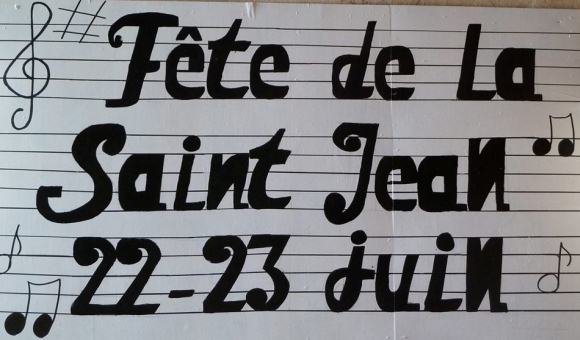 Fête de la
Saint Jean
22-23 juin